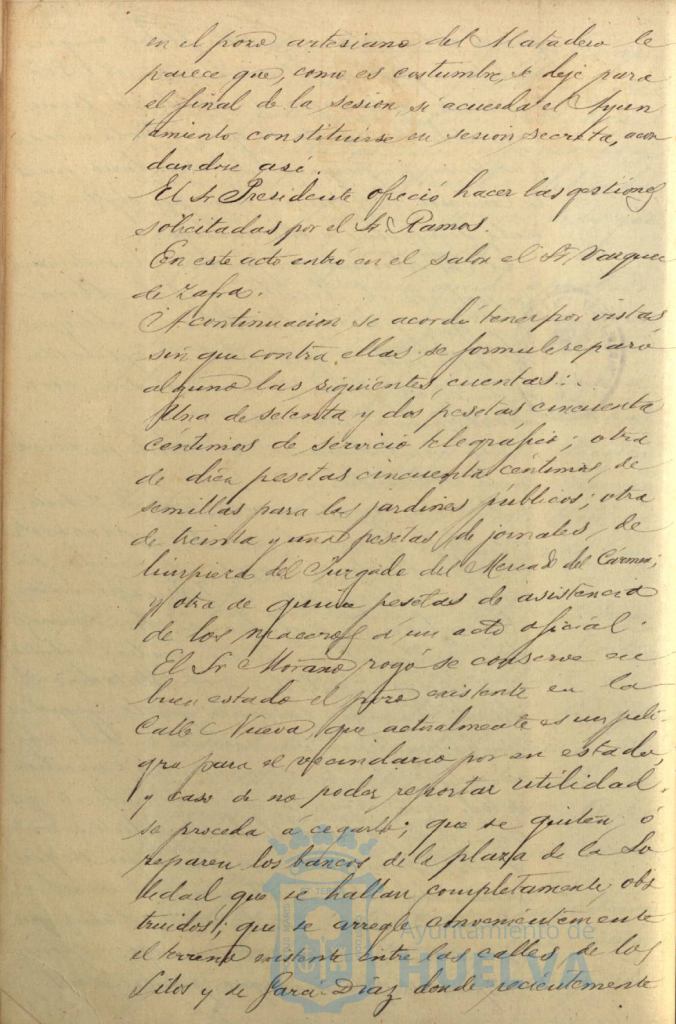 en el pozo artesiano del Matadero le
parece que, como es costumbre, se deje para
el final de la sesion, si acuerda el Ayun
tamiento constituirse en sesion secreta, acor
dandose así.
El Sr Presidente ofreció hacer las gestiones
solicitadas por el Sr. Ramos.
En este acto entró en el salon el Sr Vazquez
de Zafra.
A continuacion se acordó tener por vistas
sin que contra ellas se formule reparo
alguno las siguientes cuentas:
Una de setenta y dos pesetas cincuenta
centimos de servicio telegráfico; otra
de diez pesetas cincuenta centimos, de
semillas para los jardines públicos; otra
de treinta y una pesetas, de jornales, de
limpieza del Juzgado del Mercado del Cármen;
y otra de quince pesetas de asistencia
de los maceros á un acto oficial.
El Sr Morano rogó se conserve en
buen estado el pozo existente en la
Calle Nueva, que actualmente es un peli-
gro para el vecindario por su estado,
y caso de no poder reportar utilidad,
se proceda á cegarlo; que se quiten ó
reparen los bancos de la plaza de la So
ledad que se hallan completamente obs
truidos; que se arregle convenientemente
el terreno existente entre las calles de los
Silos y de Garci-Diaz donde recientemente
Ayuntamiento de
HUELVA